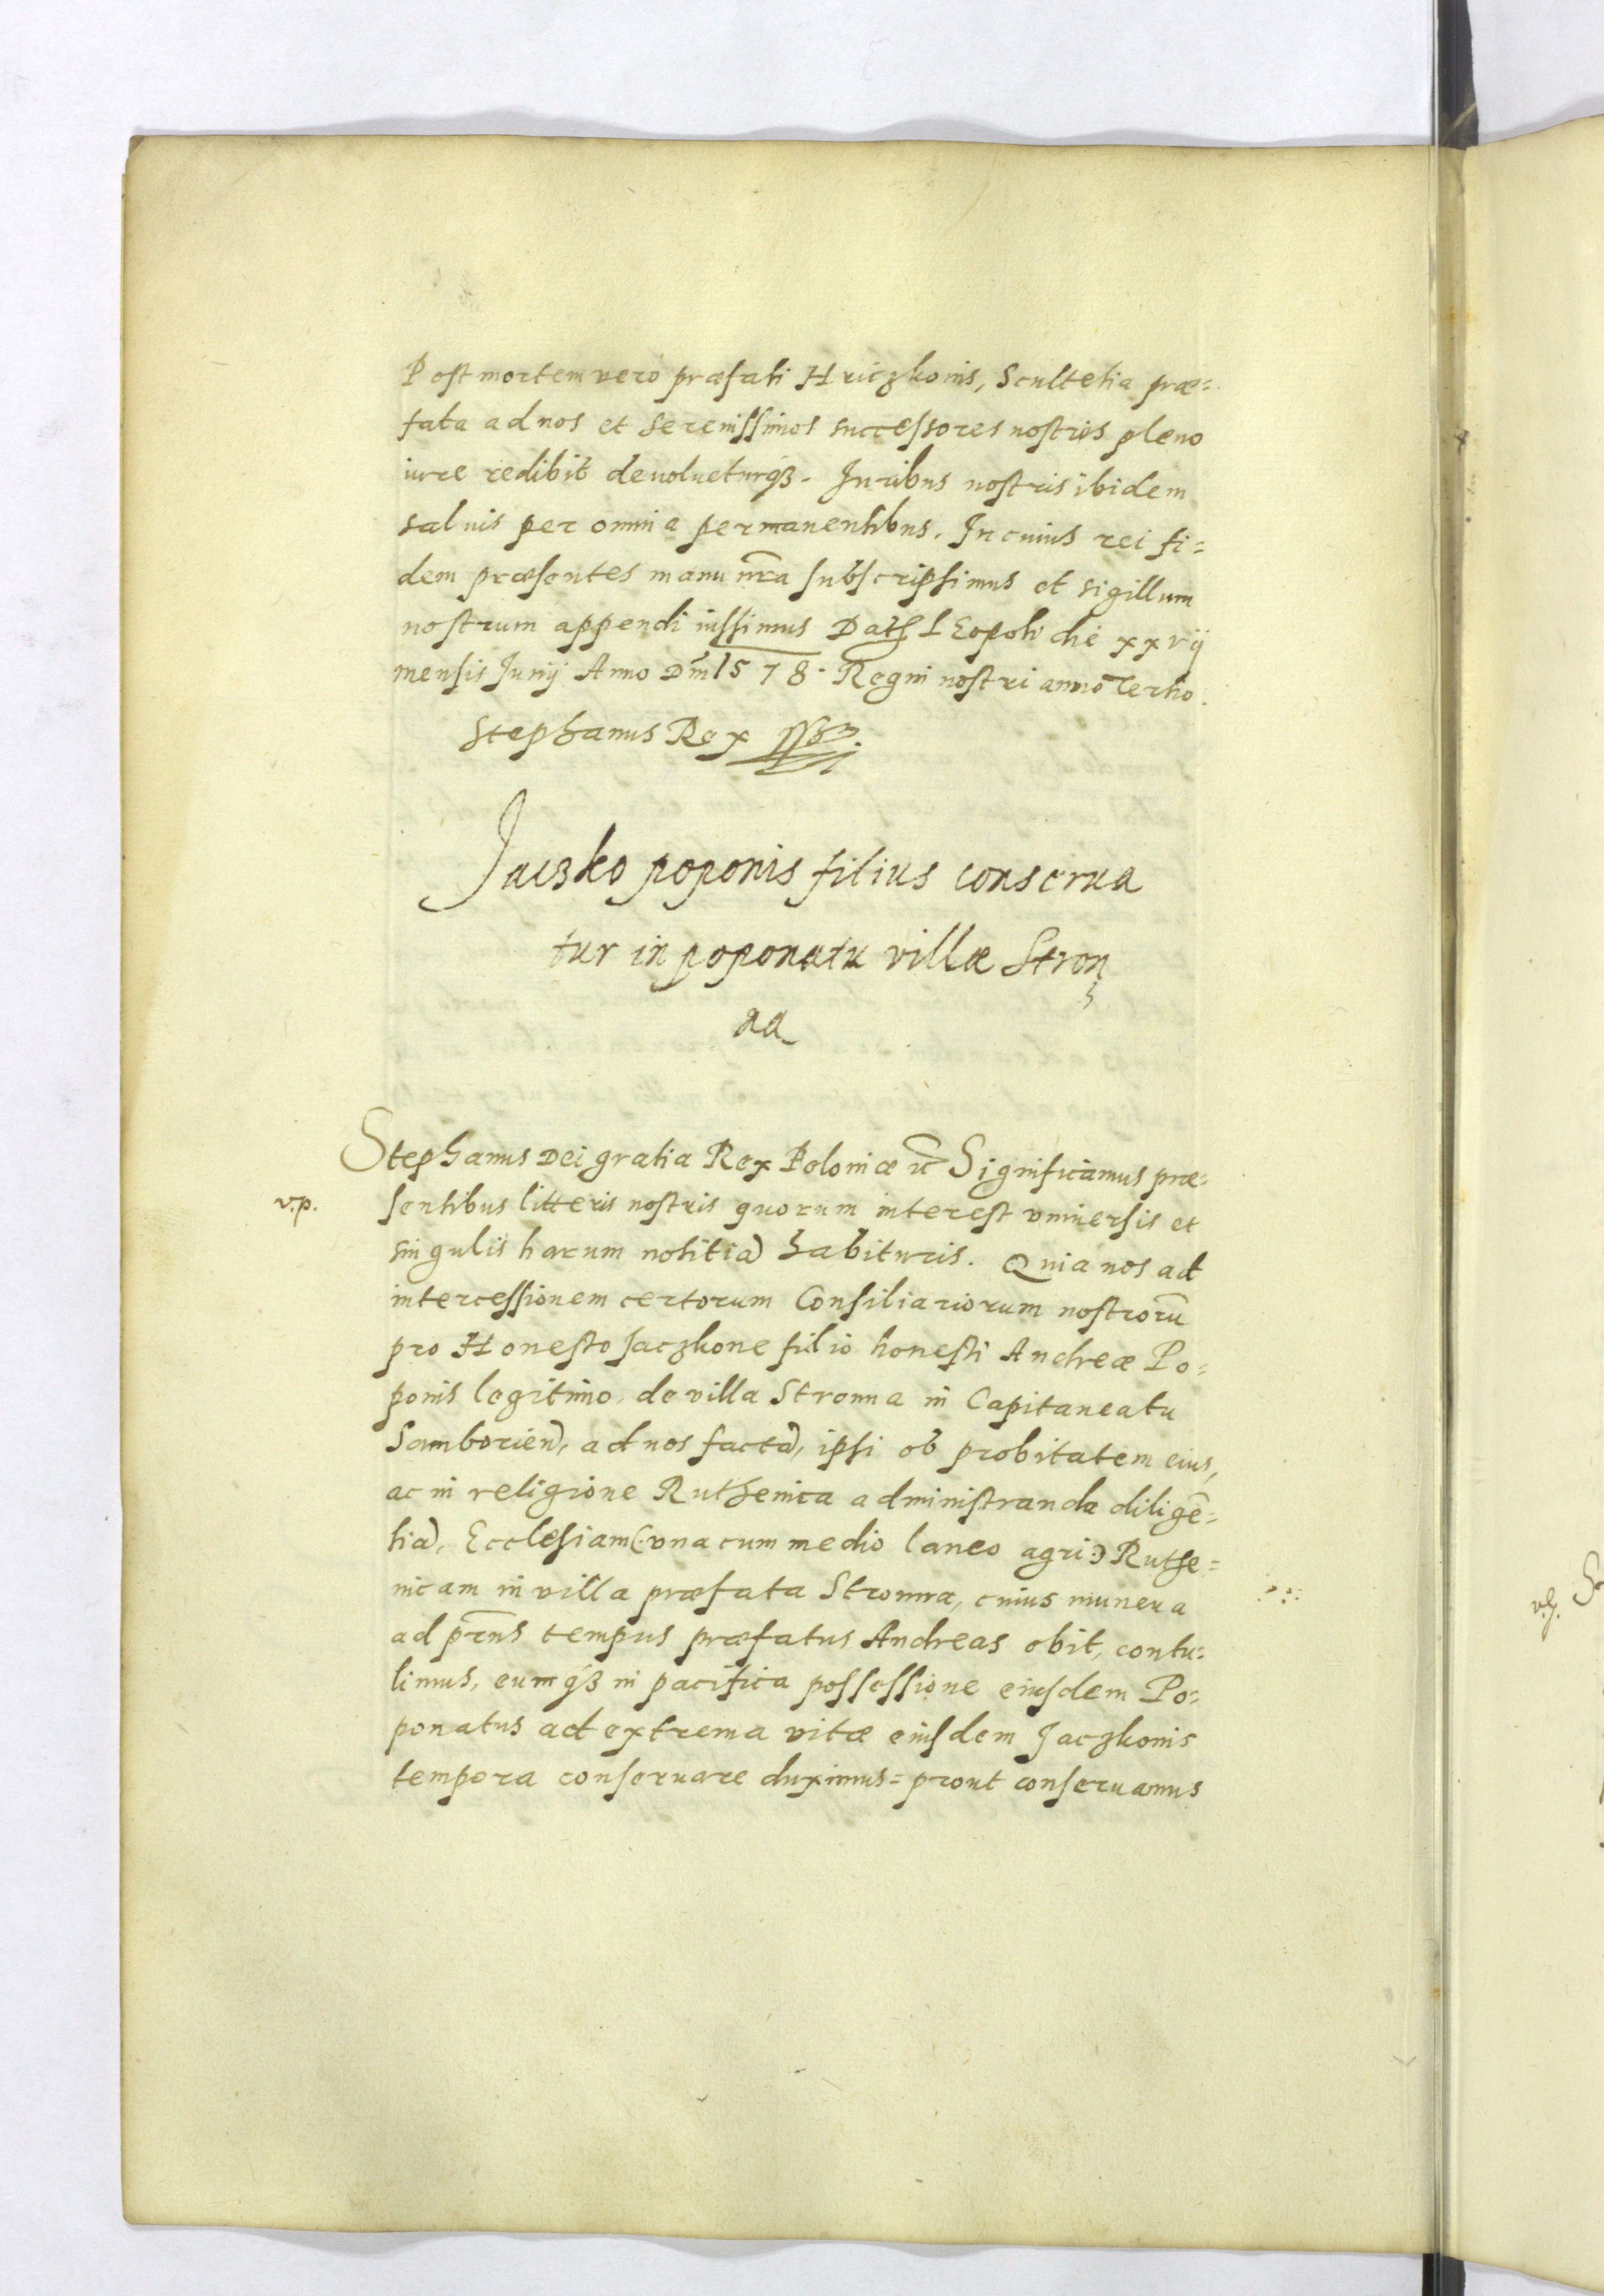 Post mortem vero præfati Hriczkonis, Scultetia præ=
fata ad nos et serenissimos successores nostros pleno
iure redibit devolueturq3. Juribus nostris ibidem
salvis per omnia permanentibus. In cuius rei fi=
dem præsentes manu nr̃a subscripsimus et sigillum
nostrum appendi iussimus Dat Leopoli die xxvij
mensis Junij Anno Dm̃ 1578. Regni nostri anno Tertio.
Stephanus Rex
Jaczko poponis filius conserva
tur in poponatu villæ Stron
na
Stephanus Dei gratia Rex Poloniæ ec̃ Significamus præ=
v.p.
sentibus litteris nostris quorum interest vniversis et
singulis harum notitiã habituris. Quia nos ad
intercessionem certorum Consiliariorum nostrorũ
pro Honesto Jaczkone filio honesti Andreæ Po=
ponis legitimo, de villa Stronna in Capitaneatu
Samborien̄, ad nos factã, ipsi ob probitatem eius,
ac in religione Ruthenica administranda diligẽ=
tiã, Ecclesiam (: vna cum medio laneo agri :) Ruthe=
nicam in villa præfata Stronna, cuius munera
ad pr̃ns tempus præfatus Andreas obit, contu=
limus, eumq3 in pacifica possessione eiusdem Po=
ponatus ad extrema vitæ eiusdem Jaczkonis
tempora conservare duximus= prout conservamus